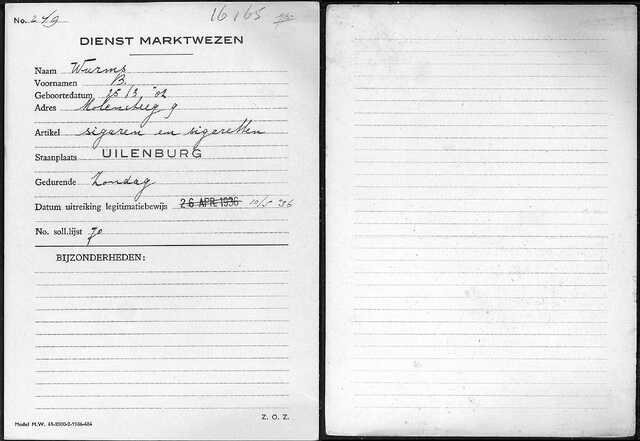 No. 249 16165
DIENST MARKTWEZEN
Naam Wurms
Voornamen B.
Geboortedatum 25/3 '02
Adres Molensteeg 9
Artikel sigaren en sigaretten
Staanplaats UILENBURG
Gedurende Zondag
Datum uitreiking legitimatiebewijs 26 APR. 1936 10/5 '36
No. soll.lijst 70
BIJZONDERHEDEN:
Z. O. Z.